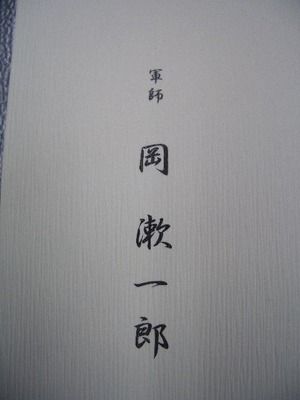 軍師
岡漱一郎